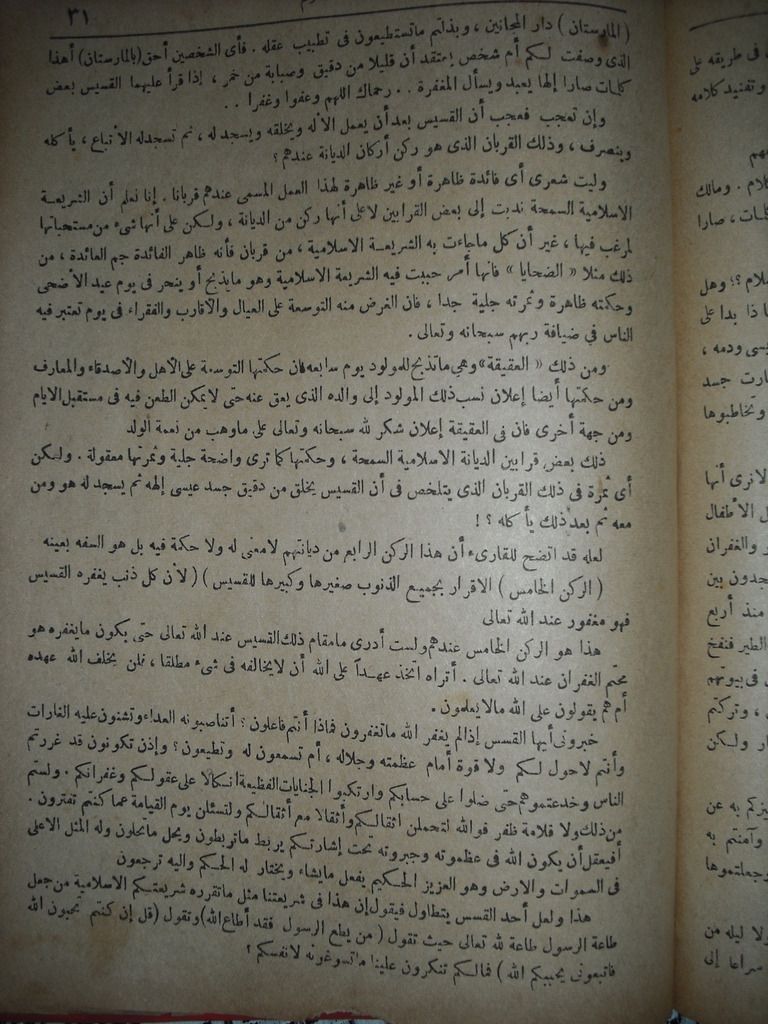 ٣١
( المارستان ) دار المجانين ، وبذلتم ماتستطيعون فى تطبيب عقله . فأى الشخصين أحق (بالمارستان) أهذا
الذى وصفت لكم أم شخص إعتقد أن قليلا من دقيق وصبابة من خمر ، إذا قرأ عليهما القسيس بعض
كلمات صارا إلها يعبد ويسأل المغفرة . . رحماك اللهم وعفوا وغفرا . .
وإن تعجب فعجب أن القسيس بعد أن يعمل الأله ويخلقه ويسجد له ، ثم تسجد له الأتباع ، يأكله
وينصرف ، وذلك القربان الذى هو ركن أركان الديانة عندهم ؟
وليت شعرى أى فائدة ظاهرة أو غير ظاهرة لهذا العمل المسمى عندهم قربانا . إنا نعلم أن الشريعة
الاسلامية السمحة ندبت إلى بعض القرابين لاعلى أنها ركن من الديانة ، ولكن على أنها شىء من مستحباتها
المرغب فيها ، غير أن كل ماجاءت به الشريعة الاسلامية ، من قربان فأنه ظاهر الفائدة جم العائدة ، من
ذلك مثلا « الضحايا » فانها أمر حببت فيه الشريعة الاسلامية وهو مايذبح أو ينحر فى يوم عيد الأضحى
وحكمته ظاهرة وثمرته جلية جدا ، فان الغرض منه التوسعة على العيال والأقارب والفقراء فى يوم تعتبر فيه
الناس في ضيافة ربهم سبحانه وتعالى .
ومن ذلك « العقيقة » وهى ماتذبح للمولود يوم سابعه فان حكمتها التوسعة على الأهل والأصدقاء والمعارف
ومن حكمتها أيضا إعلان نسب ذلك المولود إلى والده الذى يعق عنه حتى لايمكن الطعن فيه فى مستقبل الايام
ومن جهة أخرى فان فى العقيقة إعلان شكر لله سبحانه وتعالى على ماوهب من نعمة الولد
ذلك بعض قرابين الديانة الاسلامية السمحة ، وحكمتها كما ترى واضحة جلية وثمرتها معقولة . ولكن
أى ثمرة فى ذلك القربان الذى يتلخص فى أن القسيس يخلق من دقيق جسد عيسى إلهه ثم يسجد له هو ومن
معه ثم بعد ذلك يأكله ؟ !
لعله قد اتضح للقارىء أن هذا الركن الرابع من ديانتهم لامعنى له ولا حكمة فيه بل هو السفه بعينه
( الركن الخامس ) الاقرار بجميع الذنوب صغيرها وكبيرها للقسيس ) ( لأن كل ذنب يغفره القسيس
فهو مغفور عند الله تعالى
هذا هو الركن الخامس عندهم ولست أدرى مامقام ذلك القسيس عند الله تعالى حتى يكون مايغفره هو
محتم الغفران عند الله تعالى . أتراه اتخذ عهداً على الله أن لايخالفه فى شىء مطلقا ، فلن يخلف الله عهده
أم هم يقولون على الله مالايعلمون .
خبرونى أيها القسس إذا لم يغفر الله ماتغفرون فماذا أنتم فاعلون ؟ أتناصبونه العداء وتشنون عليه الغارات
وأنتم لاحول لكم ولا قوة أمام عظمته وجلاله ، أم تسمعون له وتطيعون ؟ وإذن تكونون قد غررتم
الناس وخدعتموهم حتى ضلوا على حسابكم وارتكبوا الجنايات الفظيعة اتكالا على عقولكم وغفرانكم . ولستم
من ذلك ولا قلامة ظفر فوالله لتحملن أثقالكم وأثقالا مع أثقالكم ولتسئلن يوم القيامة عما كنتم تفترون .
أفيعقل أن يكون الله فى عظموته وجبروته تحت إشارتكم يربط ماتربطون ويحل ماتحلون وله المثل الاعلى
فى السموات والارض وهو العزيز الحكيم يفعل مايشاء ويختار له الحكم واليه ترجعون
هذا ولعل أحد القسس يتطاول فيقول إن هذا فى شريعتنا مثل ماتقرره شريعتكم الاسلامية من جعل
طاعة الرسول طاعة لله تعالى حيث تقول ( من يطع الرسول فقد أطاع الله) وتقول (قل إن كنتم تحبون الله
فاتبعونى يحببكم الله ) فمالكم تنكرون علينا ماتسوغونه لانفسكم ؟